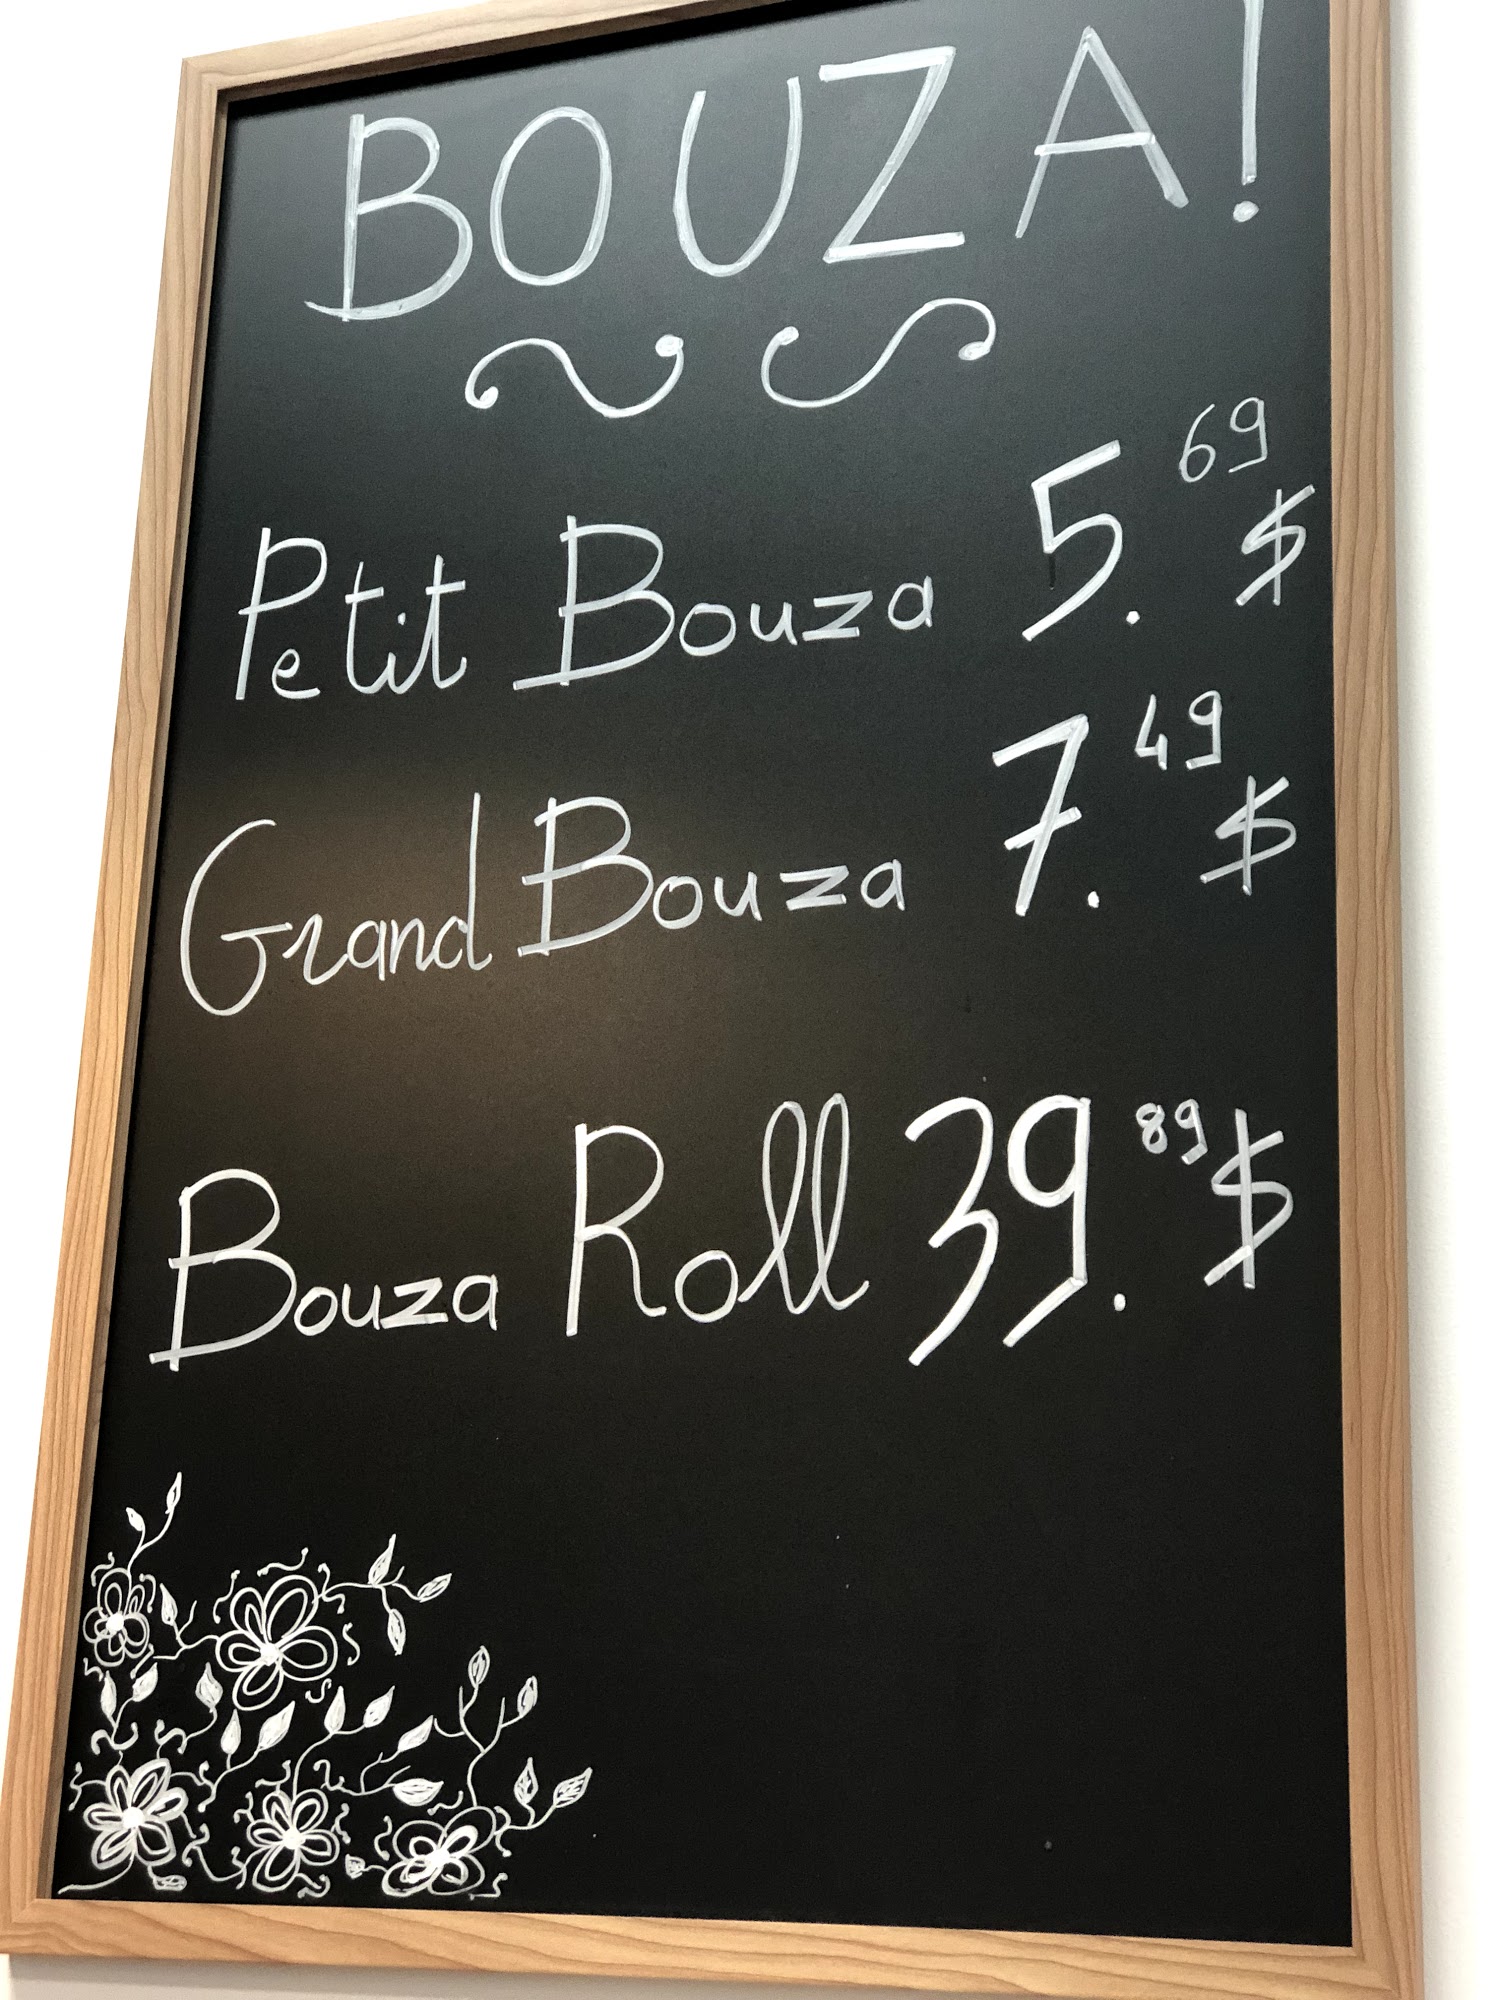 BOUZA!
Petit Bouza 5.69 $
Grand Bouza 7.49 $
Bouza Roll 39.89 $